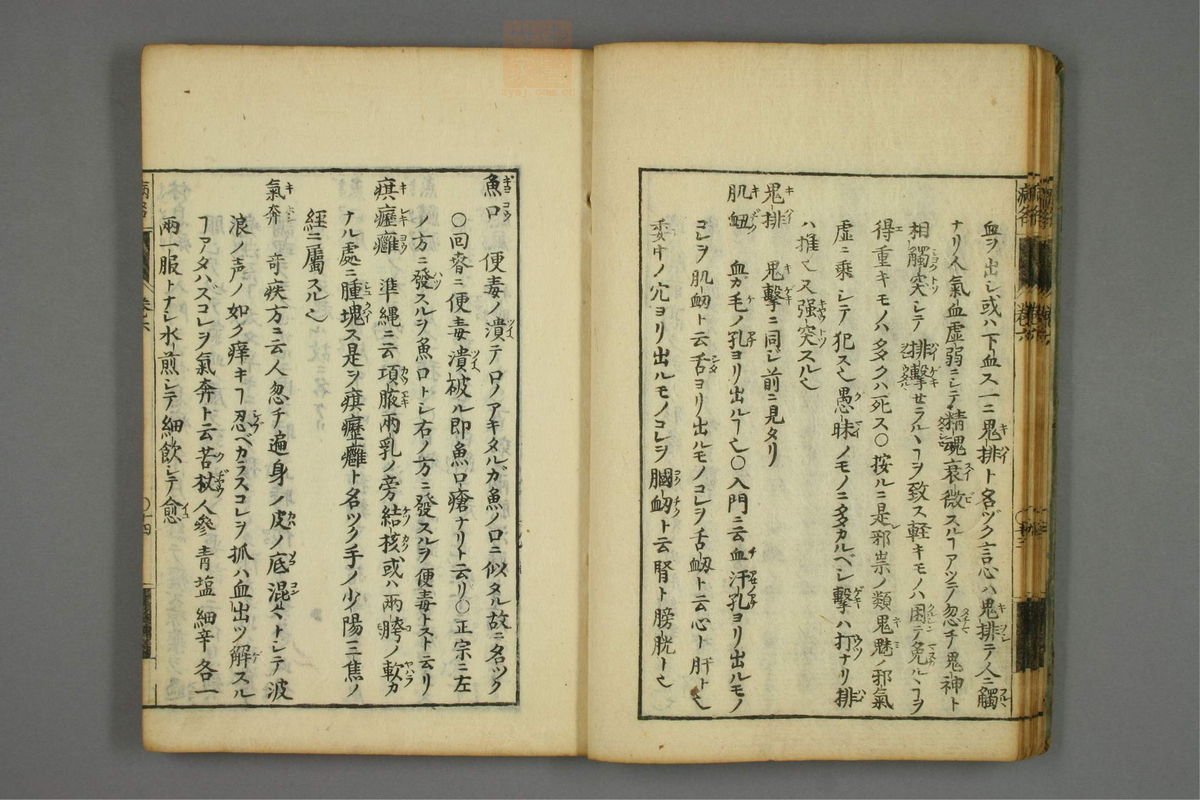 血ヲ出シ或ハ下血ス一ニ鬼排ト名ヅク言心ハ鬼排テ人ニ觸
ナリ人氣血虚弱ニシテ精魂衰微スルヿアツテ忽チ鬼神ト
相觸突シテ排撃セラルヽヿヲ致ス軽キモノハ困テ免ルヽヿヲ
得重キモノハ多クハ死ス○按ルニ是邪祟ノ類鬼魅ノ邪氣
虚ニ乘シテ犯ス也愚昧ノモノニ多カルベシ撃ハ打ナリ排
ハ推也又强突スル也
鬼排 鬼撃ニ同ジ前ニ見タリ
肌衄 血ガ毛ノ孔ヨリ出ルヿ也○入門ニ云血汗孔ヨリ出ルモノ
コレヲ肌衄ト云舌ヨリ出ルモノコレヲ舌衄ト云心ト肝ト也
委中ノ穴ヨリ出ルモノコレヲ膕衄ト云腎ト膀胱ト也
魚口 便毒ノ潰テロノアキタルガ魚ノ口ニ似タル故ニ名ツク
○回春ニ便毒潰破ル即魚口瘡ナリト云リ○正宗ニ左
ノ方ニ發スルヲ魚口トシ右ノ方ニ發スルヲ便毒トスト云リ
痰癧癰 準縄ニ云項腋兩乳ノ旁結核或ハ兩胯ノ軟カ
ナル處ニ腫塊ス是ヲ痰癧癰ト名ツク手ノ少陽三焦ノ
經ニ屬スル也
氣奔 奇疾方ニ云人忽チ遍身ノ皮ノ底混々トシテ波
浪ノ声ノ如ク痒キヿ忍ベカラスコレヲ抓ハ血出ツ解スル
ヿアタハズコレヲ氣奔ト云苦杖人參青塩細辛各一
兩一服トナシ水煎シテ細飲シテ愈